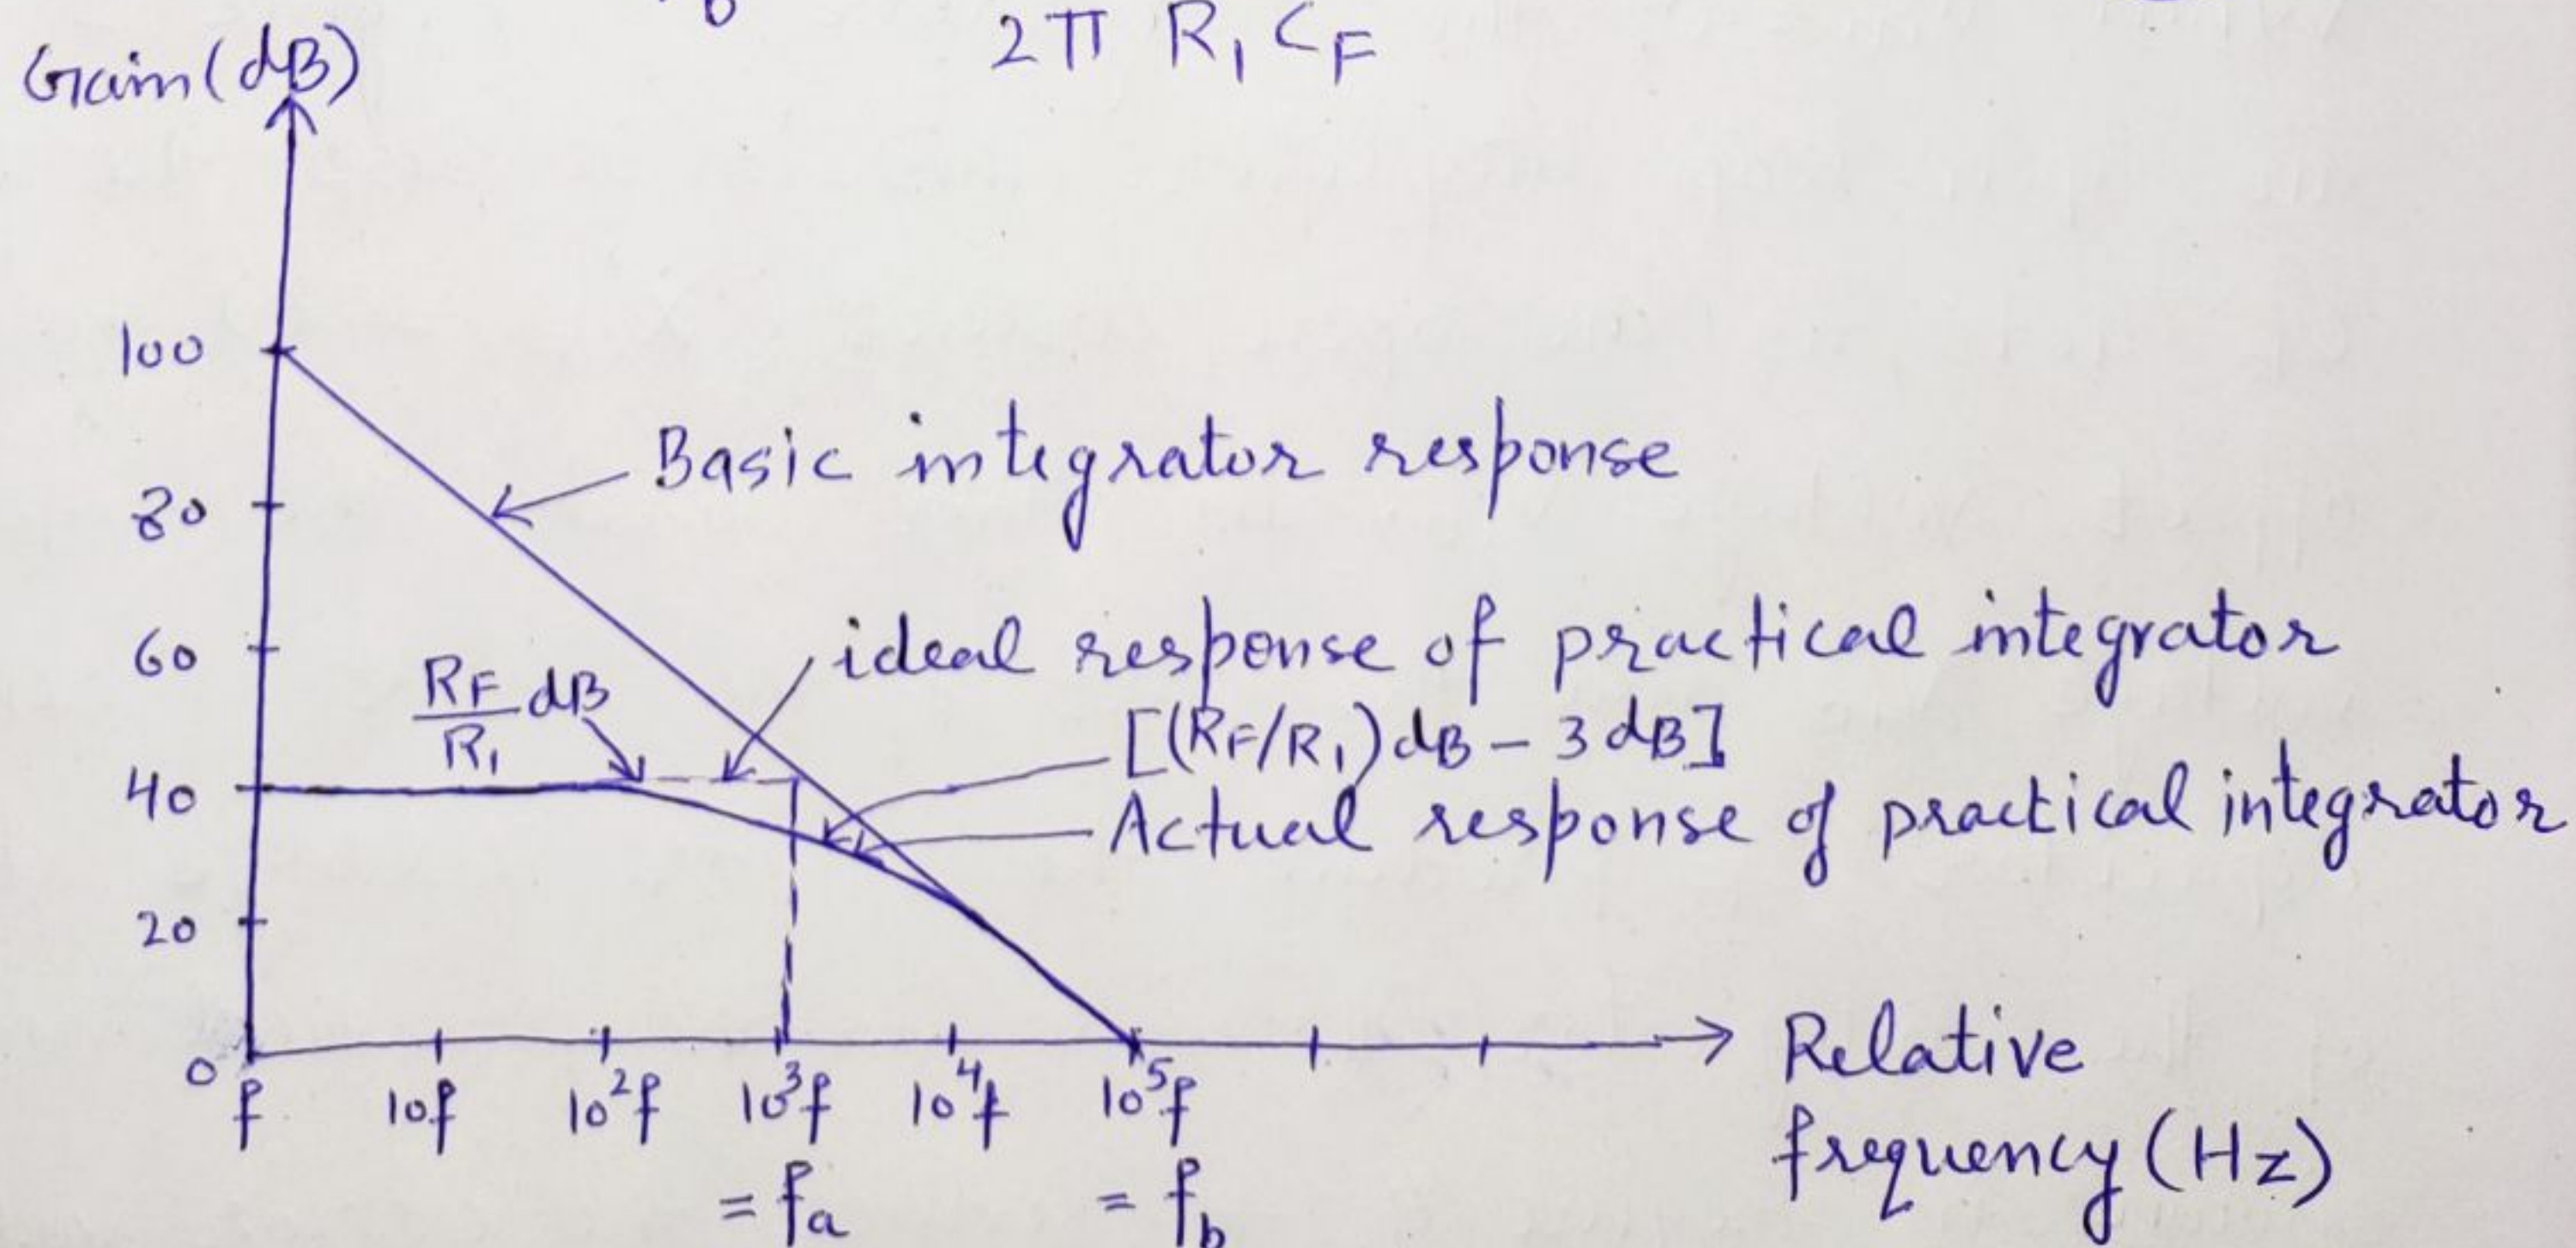 2π R₁ C_F
Gain (dB)
100
80
60
40
20
0
Basic integrator response
ideal response of practical integrator
R_F/R₁ dB
[(R_F/R₁) dB - 3 dB]
Actual response of practical integrator
f 10f 10²f 10³f 10⁴f 10⁵f
= f_a = f_b
Relative
frequency (Hz)